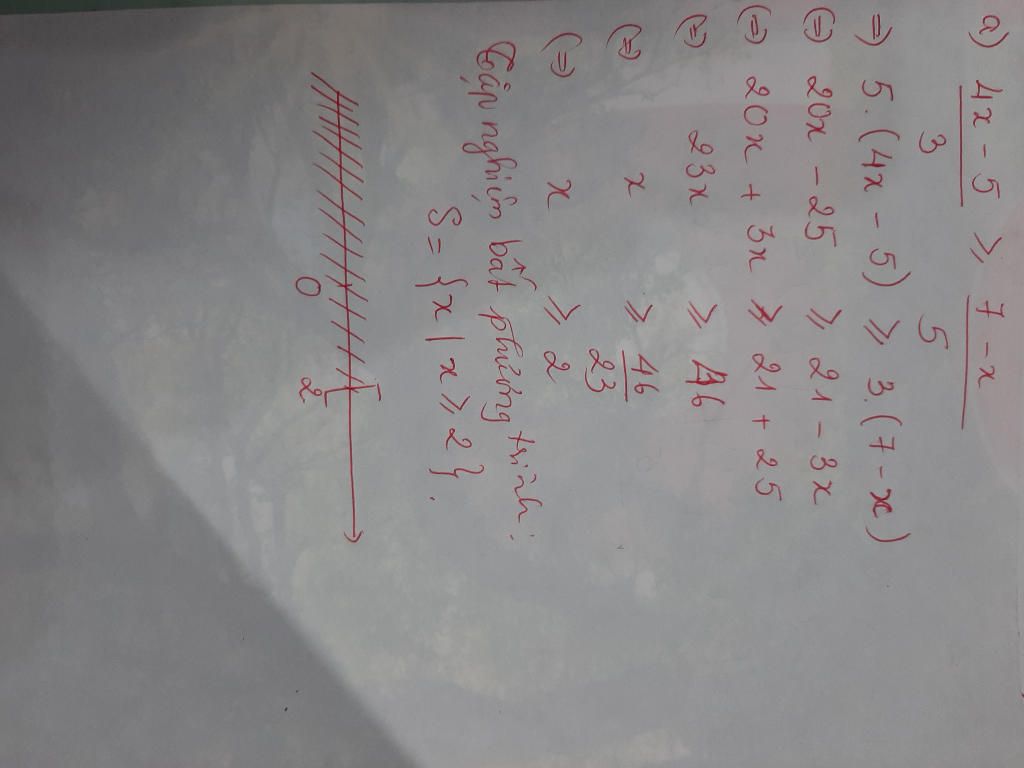 a) 4x - 5 / 3 ≥ 7 - x / 5
=) 5.(4x - 5) ≥ 3.(7 - x)
(=) 20x - 25 ≥ 21 - 3x
(=) 20x + 3x ≥ 21 + 25
(=) 23x ≥ 46
(=) x ≥ 46 / 23
(=) x ≥ 2
Tập nghiệm bất phương trình:
S = {x | x ≥ 2}.
0 2